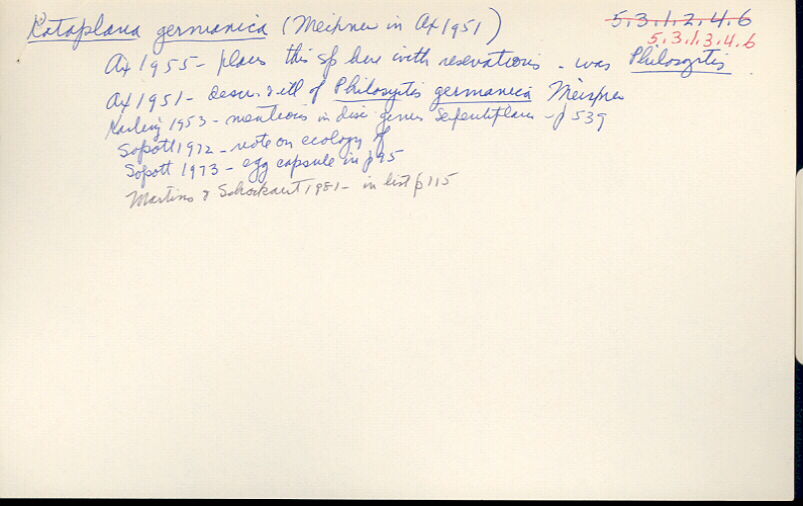 Kataplana germanica (Meixner in Ax 1951)
5.3.1.2.4.6
5.3.1.3.4.6
Ax 1955 - places this sp here with reservations - was Philosyrtis
Ax 1951 - descr. & ill of Philosyrtis germanica Meixner
Karling 1953 - mentions in disc genus Serpentiplana - p 539
Sopott 1972 - note on ecology of
Sopott 1973 - egg capsule in p 95
Martens & Schockaert 1981 - in list p 115